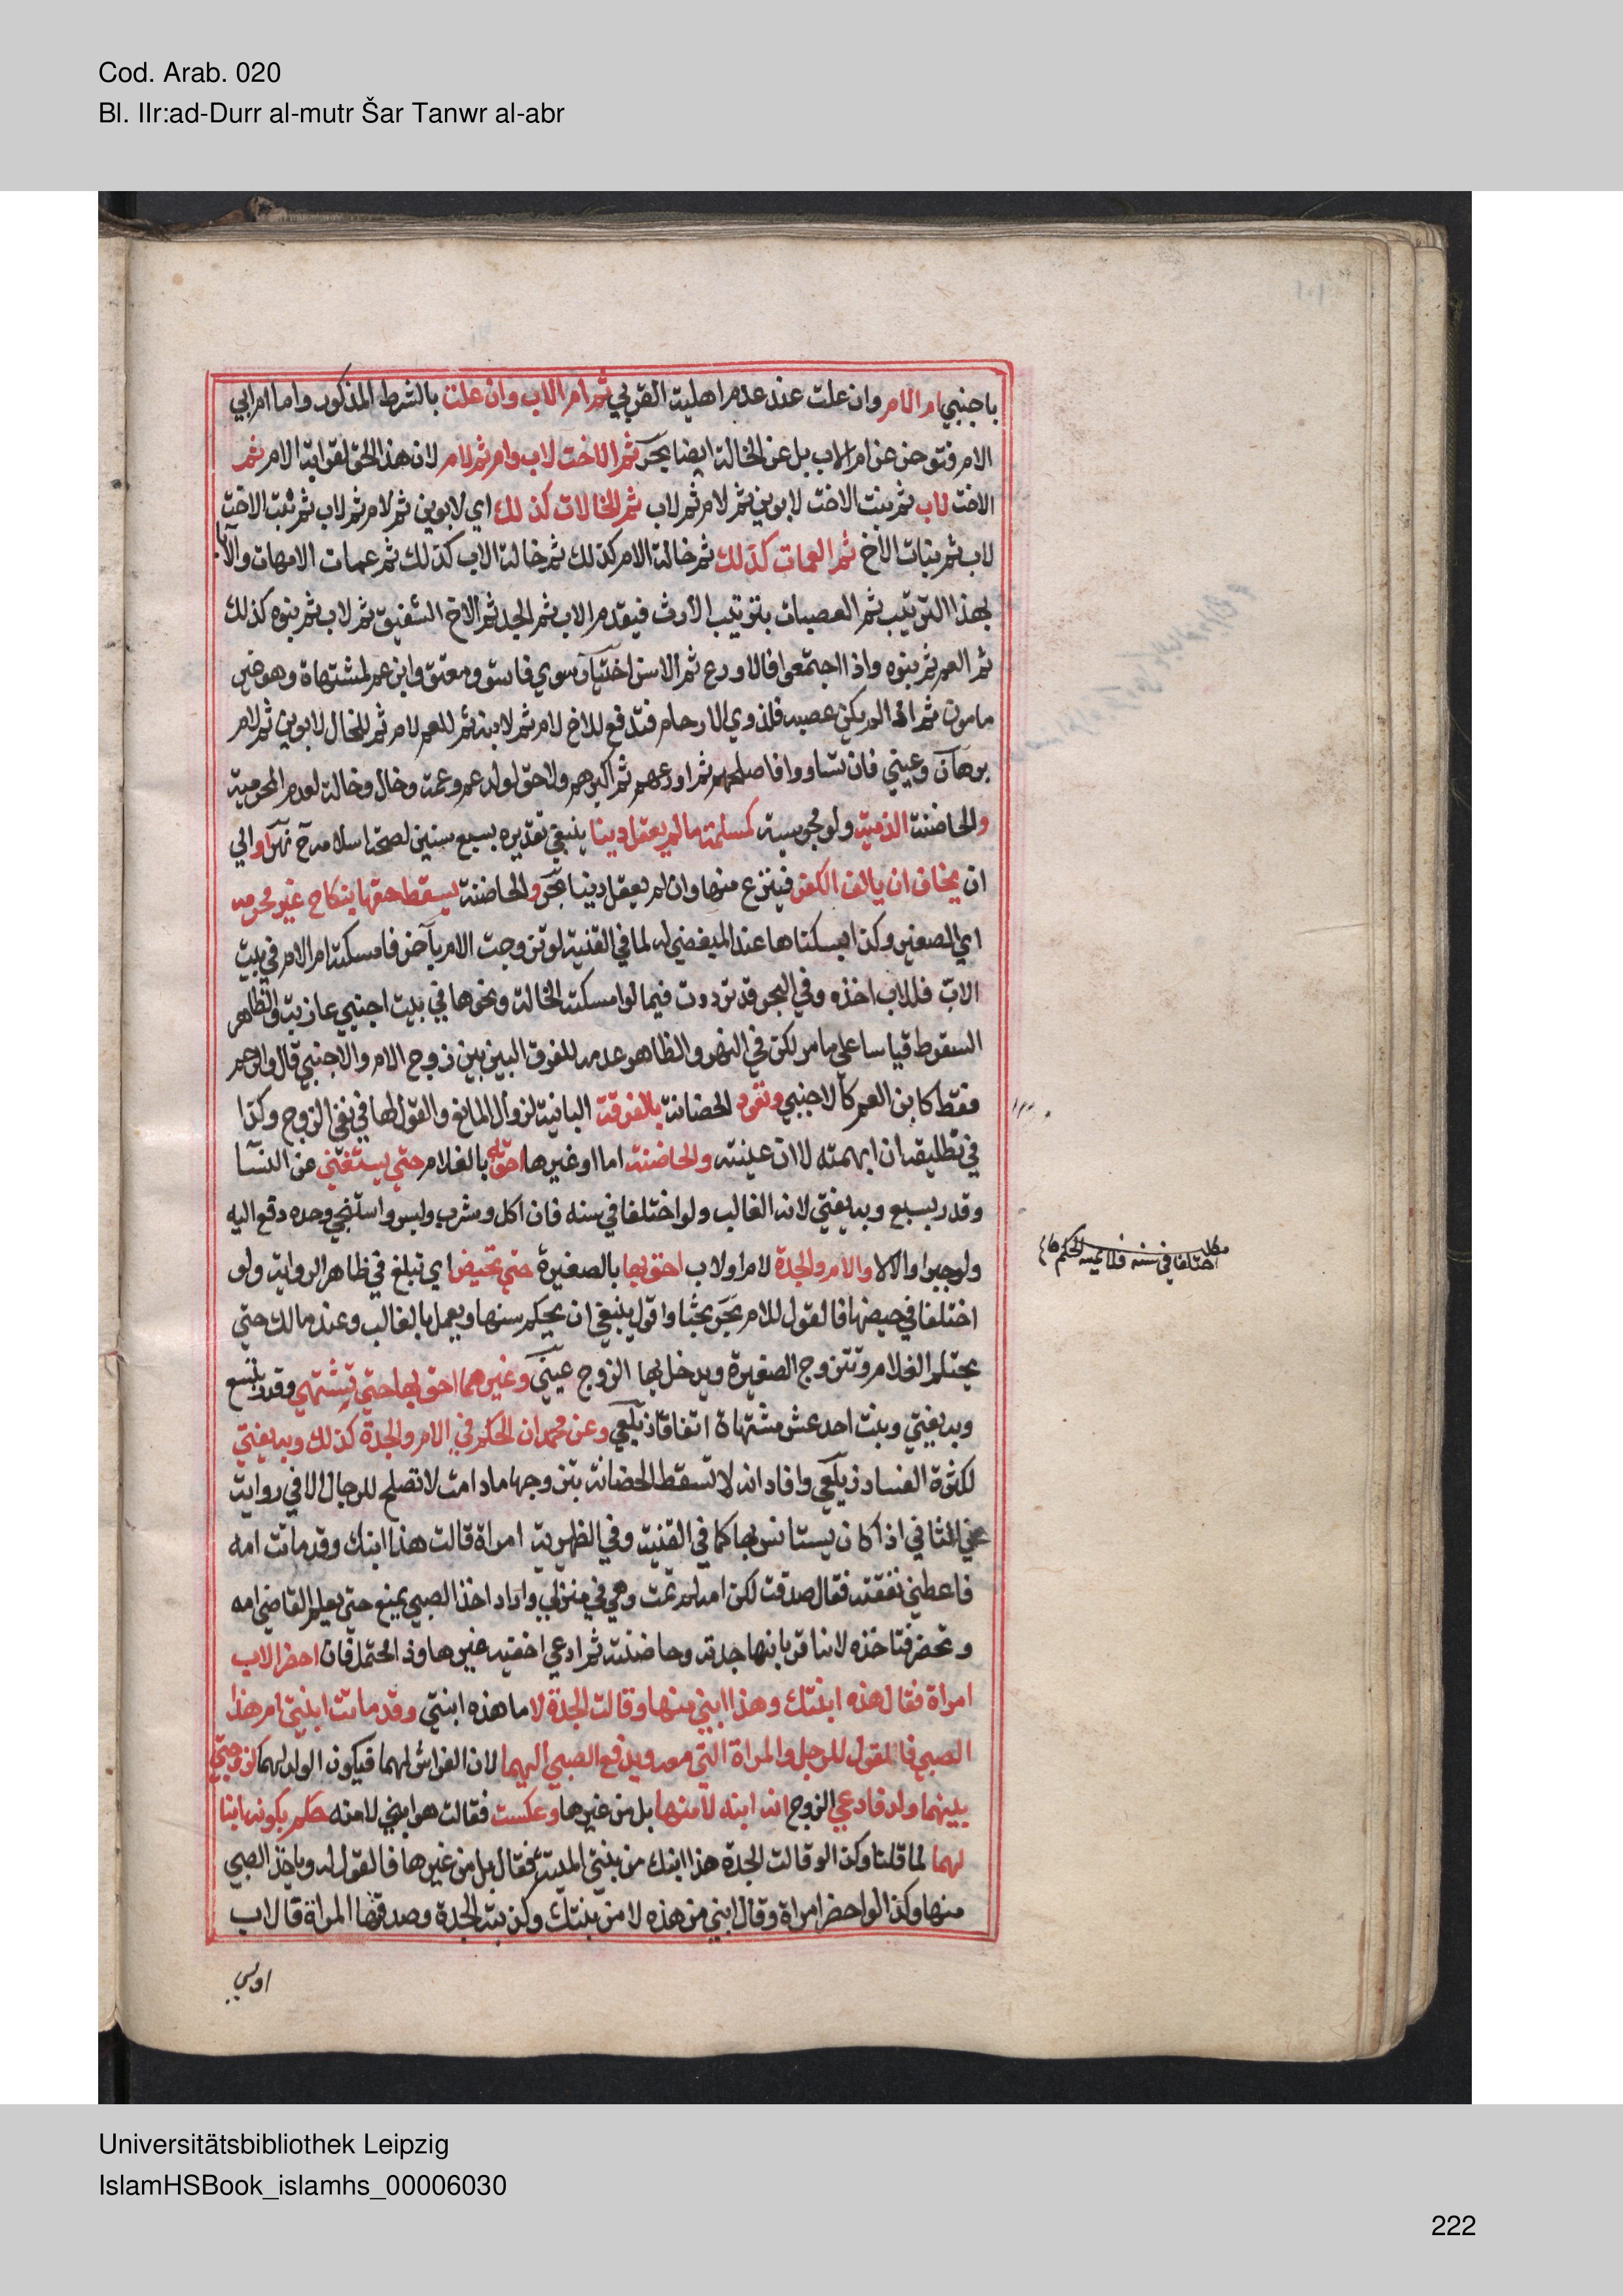 Cod. Arab. 020
Bl. IIr:ad-Durr al-mutr Šar Tanwr al-abr
باجنبي ام الام وان علت عند عدم اهلية القربي ثم ام الاب وان علت بالشرط المذكور واما ام ابي
الام فتوخر عن ام الاب بل عن الخالة ايضا بحر ثم الاخت لاب وام ثم لام لان هذا الحق لقرابة الام ثم
الاخت لاب ثم بنت الاخت لابوين ثم لام ثم لاب ثم الخالات كذلك اي لابوين ثم لام ثم لاب ثم بنت الاخت
لاب ثم بنات الاخ ثم العمات كذلك ثم خالة الام كذلك ثم خالة الاب كذلك ثم عمات الامهات والآبا
بهذا الترتيب ثم العصبات بترتيب الارث فيقدم الاب ثم الجد ثم الاخ الشقيق ثم لاب ثم بنوه كذلك
ثم العم ثم بنوه واذا اجتمعوا فالاورع ثم الاسن اختيار سوي فاسق ومعتوه وابن عم لمشتهاة وهو غير
مامون ثم اذا لم يكن عصبه فلذوي الارحام فتدفع للاخ لام ثم لابنه ثم للعم لام ثم للخال لابوين ثم لام
برهان وعيني فان تساووا فاصلحهم ثم اورعهم ثم اكبرهم ولا حق لولد عم وعمة وخال وخالة لعدم المحرمية
والحاضنة الذمية ولو مجوسية كمسلمة ما لم يعقل دينا ينبغي تقديره بسبع سنين لصحة اسلامه ح نهر او الي
ان يخاف ان يالف الكفر فينزع منها وان لم يعقل دينا بحر والحاضنة يسقط حقها بنكاح غير محرمه
اي الصغير وكذا بسكناها عند المبغضي له لما في القنية لو تزوجت الام بآخر فامسكته ام الام في بيت
الاب فللاب اخذه وفي البحر قد ترددت فيما لو امسكته الخالة ونحوها في بيت اجنبي عازبة والظاهر
السقوط قياسا علي ما مر لكن في النهر والظاهر عدمه للفرق البين بين زوج الام والاجنبي قال والرحم
فقط كابن العم كالاجنبي وتعود الحضانة بالفرقة الباينة لزوال المانع والقول لها في نفي الزوج وكذا
في تطليقه ان ابهمته لا ان عينته والحاضنة اما او غيرها احق به بالغلام حتي يستغني عن النسا
وقدر بسبع وبه يفتي لانه الغالب ولو اختلفا في سنه فان اكل وشرب ولبس واستنجي وحده دفع اليه
ولو جبرا والا لا والام والجدة لام او لاب احق بها بالصغيرة حتي تحيض اي تبلغ في ظاهر الرواية ولو
اختلفا في حيضها فالقول للام بحر بحثا واقول ينبغي ان يحكم سنها ويعمل بالغالب وعند مالك حتي
يحتلم الغلام وتتزوج الصغيرة ويدخل بها الزوج عيني وغيرهما احق بها حتي تشتهي وقدر بتسع
وبه يفتي وبنت احد عشر مشتهاة اتفاقا زيلعي وعن محمد ان الحكم في الام والجدة كذلك وبه يفتي
لكثرة الفساد زيلعي وافاد انه لا تسقط الحضانة بتزوجها مادامت لا تصلح للرجال الا في رواية
عن الثاني اذا كان يستانس بها كما في القنية وفي الظهيرية امراة قالت هذا ابنك وقد ماتت امه
فاعطني نفقته فقال صدقت لكن امه لم تمت وهي في منزلي واراد اخذ الصبي يمنع حتي يعلم القاضي امه
وتحضر فتاخذه لانه اقر بانها جدته وحاضنته ثم ادعي احقية غيرها وذا محتمل فان احضر الاب
امراة فقال هذه ابنتك وهذا ابني منها وقالت الجدة لا ما هذه ابنتي وقد ماتت ابنتي ام هذا
الصبي فالقول للرجل والمراة التي معه ويدفع الصبي اليهما لان الفراش لهما فيكون الولد لهما كزوجين
بينهما ولد فادعي الزوج انه ابنه لا منها بل من غيرها وعكست فقالت هو ابني لا منه حكم بكونه ابنا
لهما لما قلنا وكذا لو قالت الجدة هذا ابنك من بنتي الميتة فقال بل من غيرها فالقول له وياخذ الصبي
منها وكذا لو احضر امراة وقال ابني من هذه لا من بنتك وكذبته الجدة وصدقتها المراة قالاب
اولي
اختلفا في سنه
Universitätsbibliothek Leipzig
IslamHSBook_islamhs_00006030
222